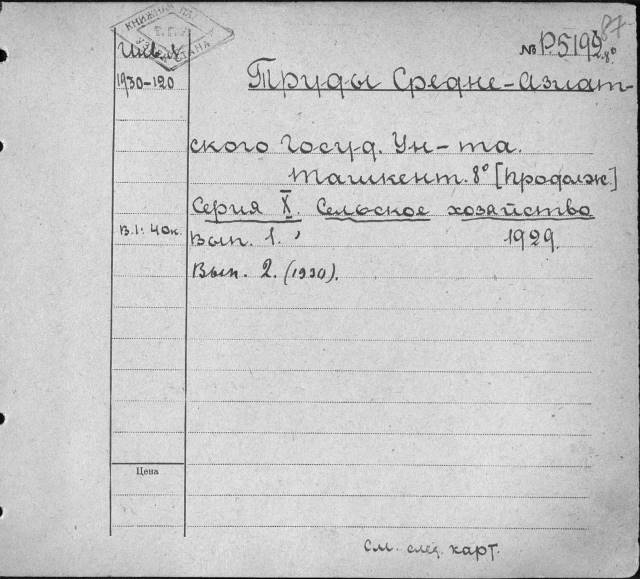 87
КНИЖНАЯ ПАЛ
Инв. №
№ Р.5192 8°
1930-120
Труды Средне-Азиат-
ского Госуд. Ун-та.
Ташкент. 8° [Продолж.]
Серия X. Сельское хозяйство
В.1: 40к.
Вып. 1. 1929.
Вып. 2. (1930).
Цена
См. след. карт.